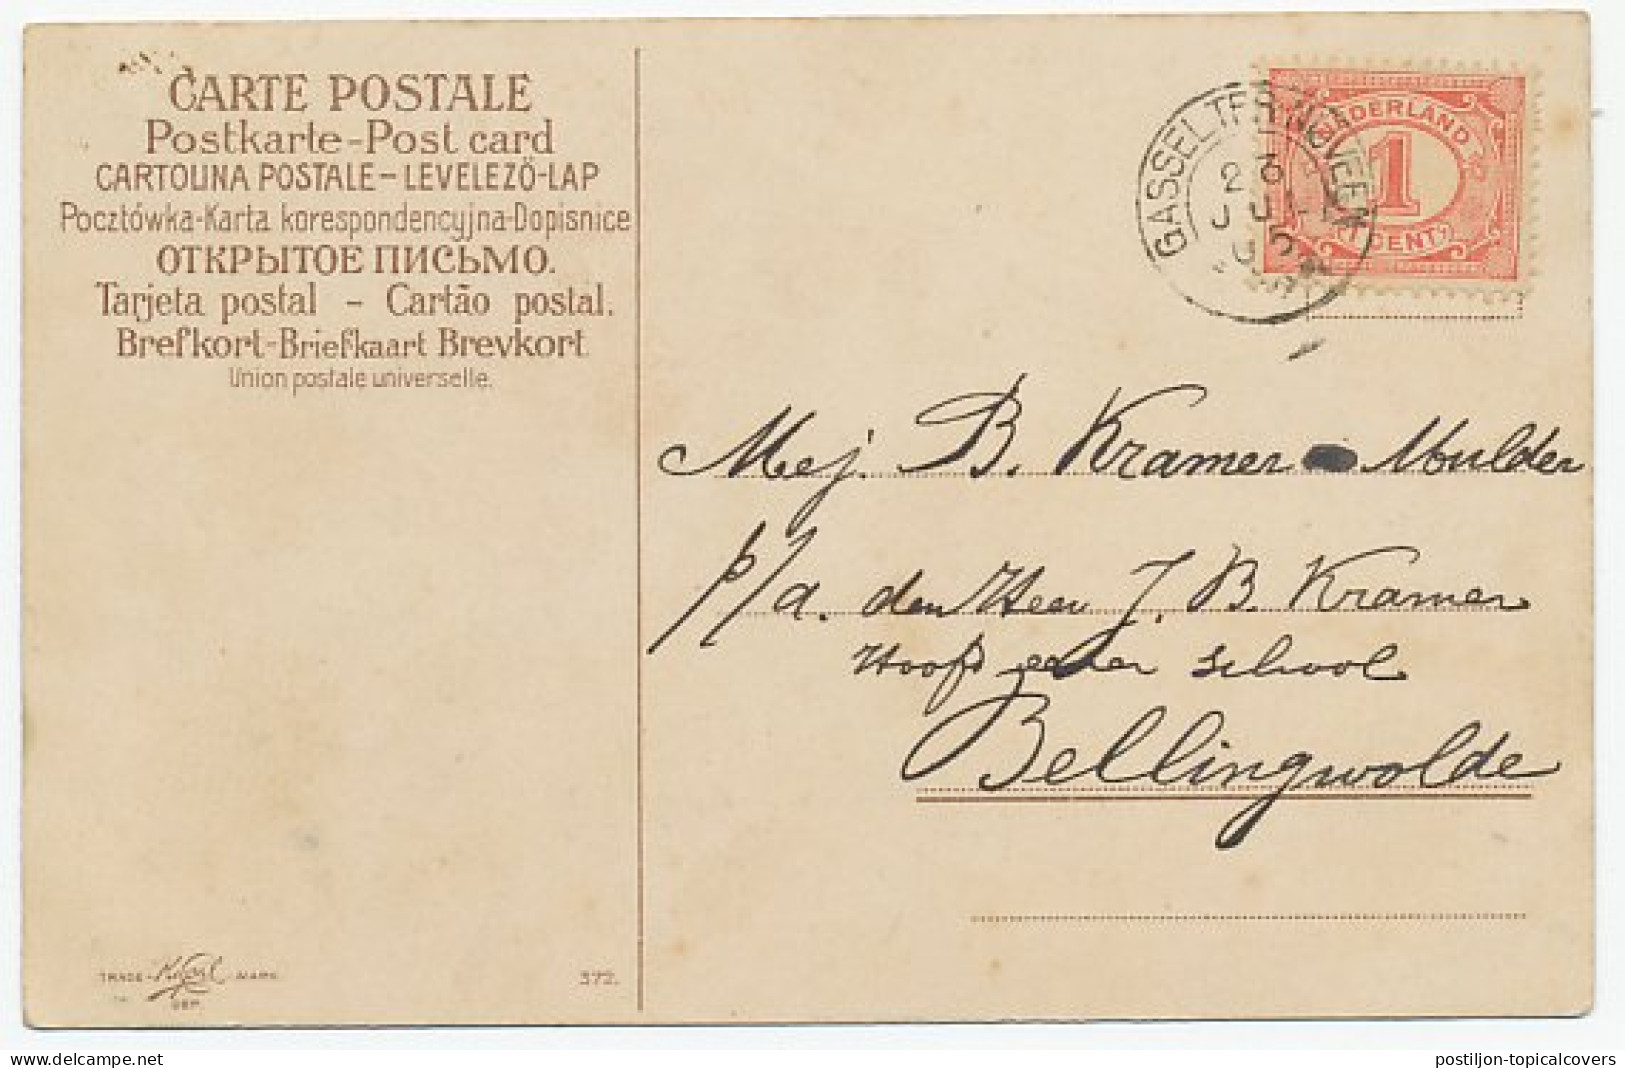 CARTE POSTALE
Postkarte-Post card
CARTOLINA POSTALE-LEVELEZÖ-LAP
Pocztówka-Karta korespondencyjna-Dopisnice
ОТКРЫТОЕ ПИСЬМО.
Tarjeta postal - Cartão postal.
Brefkort-Briefkaart Brevkort
Union postale universelle.
GASSELTERNIJVEEN
NEDERLAND
1
CENT
Mej. B. Kramer Mulder
p/a. den Heer J. B. Kramer
Hoofd eener school
Bellingwolde
TRADE - MARK
372.
postiljon-topicalcovers